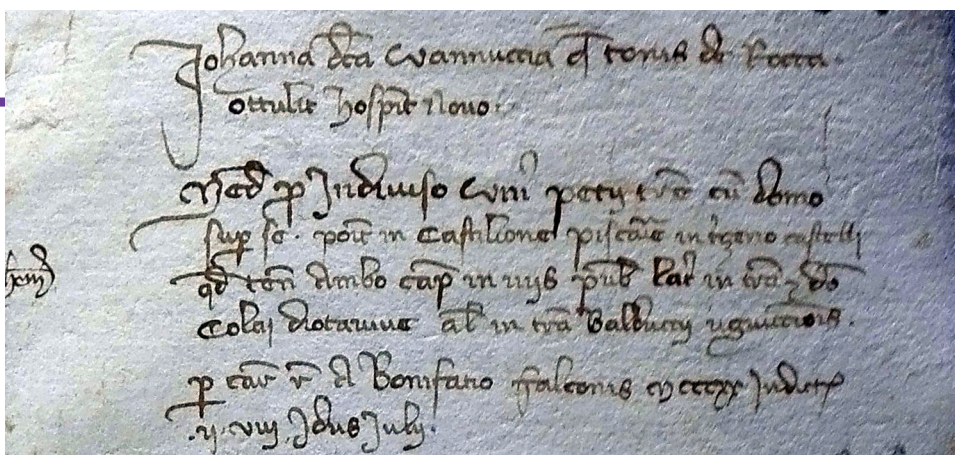 Johanna dca Vannuccia q̄ tonis de Rocca.
ottulit hospit Novo.
Med p Indiviso Uni petii tre cu domo
sup se. poit in Castilione piscarie in tgeno castelli
qd ten Ambo cap in viis pub lat in tra
Colai diotaiuve al in tra Balduccii uguiccionis.
p car r a Bonifatio Falconis mcccxx Indict
.ii. viii. Idus Julii.